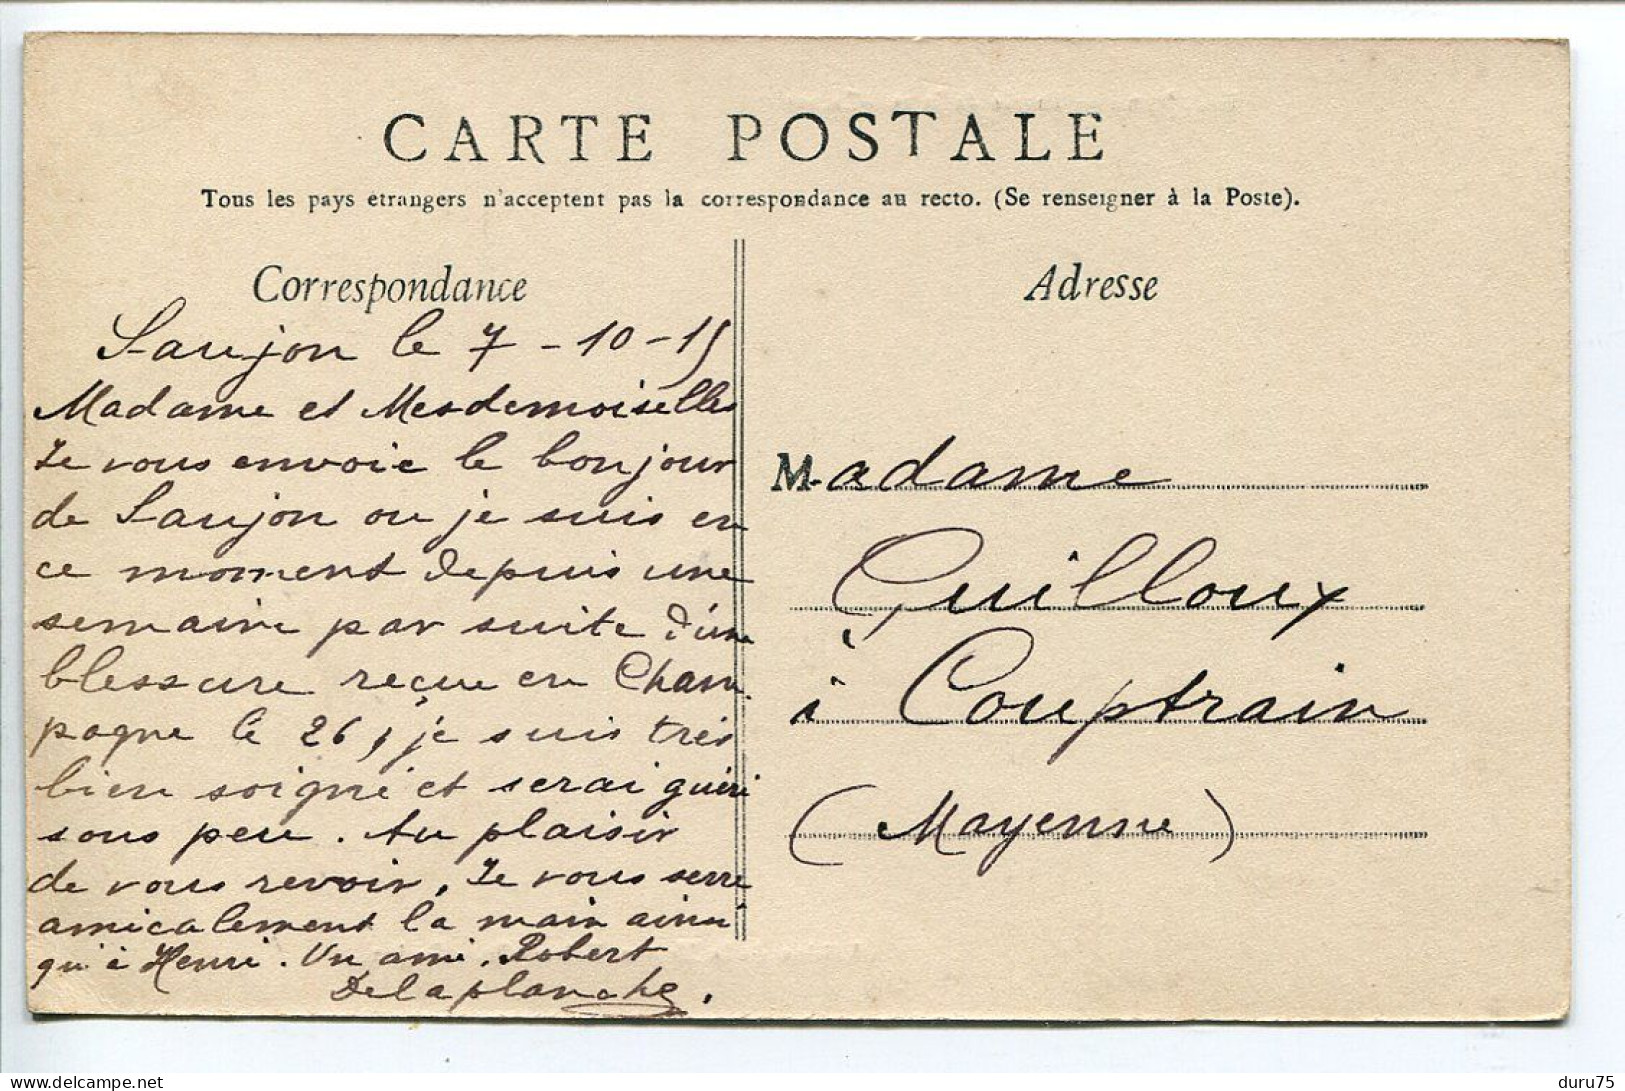 CARTE POSTALE
Tous les pays etrangers n'acceptent pas la correspondance au recto. (Se renseigner à la Poste).
Correspondance
Saujon le 7-10-15
Madame et Mesdemoiselles
Je vous envoie le bonjour
de Saujon ou je suis en
ce moment depuis une
semaine par suite d'une
blessure reçue en Cham
pagne le 26, je suis très
bien soigné et serai guéri
sous peu. Au plaisir
de vous revoir. Je vous serre
amicalement la main ainsi
qu'à Henri. Un ami. Robert
Delaplanche.
Adresse
Madame
Guilloux
à Couptrain
(Mayenne)
www.delcampe.net
duru75